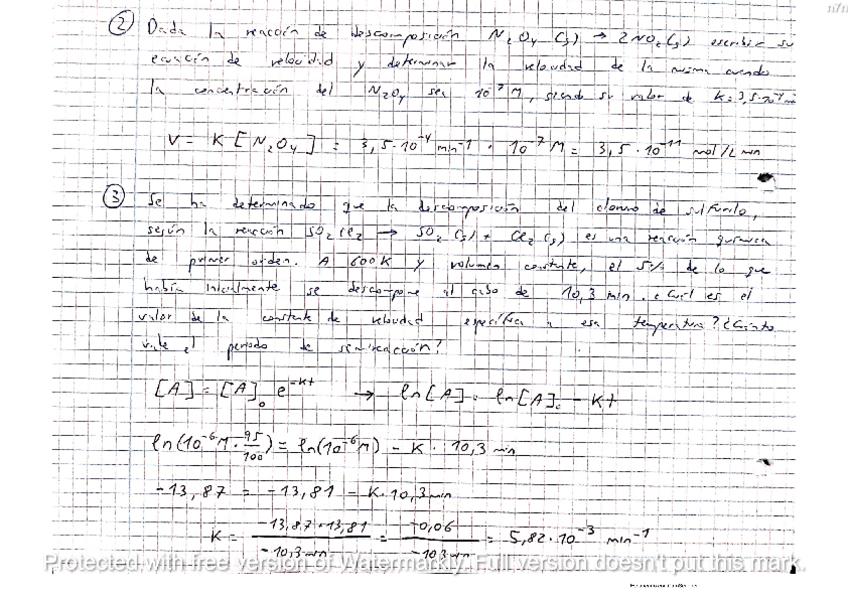 ② Dada la reacción de descomposición N₂O₄ (g) → 2NO₂ (g) escribir su
ecuación de velocidad y determinar la velocidad de la misma cuando
la concentración del N₂O₄ sea 10⁻⁷ M, siendo su valor de K = 3,5·10⁻⁴
V = K [N₂O₄] = 3,5·10⁻⁴ min⁻¹ · 10⁻⁷ M = 3,5·10⁻¹¹ mol/L min
③ Se ha determinado que la descomposición del cloruro de sulfurilo,
según la reacción SO₂Cl₂ → SO₂ (g) + Cl₂ (g) es una reacción química
de primer orden. A 600K y volumen constante, el 5% de lo que
había inicialmente se descompone al cabo de 10,3 min. ¿Cuál es el
valor de la constante de velocidad específica a esa temperatura? ¿Cuánto
vale el periodo de semirreacción?
[A] = [A]₀ e⁻ᴷᵗ → ln[A] = ln[A]₀ - Kt
ln(10⁻⁶M · 95/100) = ln(10⁻⁶M) - K · 10,3 min
-13,87 = -13,81 - K·10,3 min
K = (-13,87+13,81)/(-10,3 min) = (-0,06)/(-10,3 min) = 5,82·10⁻³ min⁻¹
Protected with free version of Watermarkly. Full version doesn't put this mark.